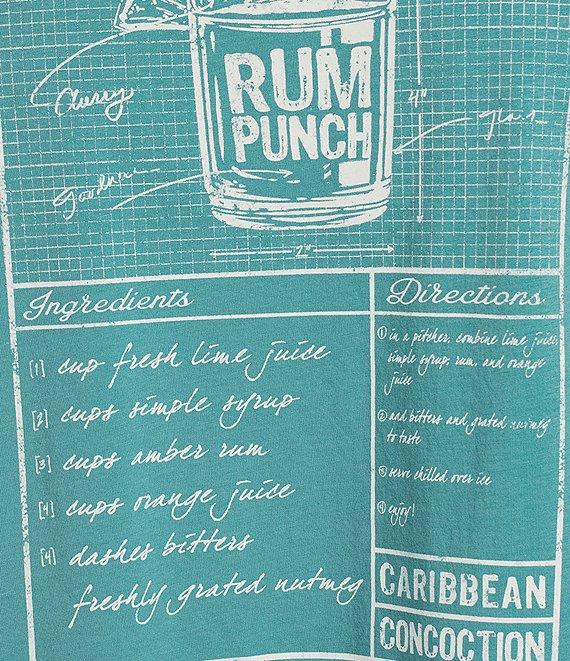 RUM
PUNCH
Cherry
4"
glass
Goodness
2"
Ingredients
[1] cup fresh lime juice
[2] cups simple syrup
[3] cups amber rum
[4] cups orange juice
[4] dashes bitters
freshly grated nutmeg
Directions
① in a pitcher, combine lime juice,
simple syrup, rum, and orange
juice
② add bitters and grated nutmeg
to taste
③ serve chilled over ice
④ enjoy!
CARIBBEAN
CONCOCTION